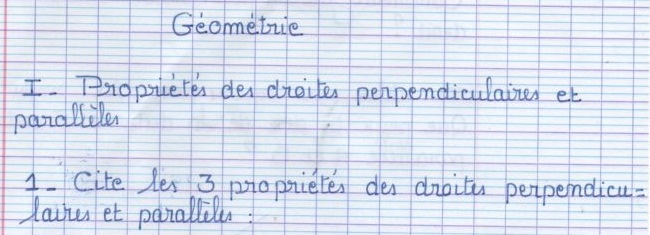 Géométrie
I - Propriétés des droites perpendiculaires et
parallèles
1 - Cite les 3 propriétés des droites perpendicu=
laires et parallèles :